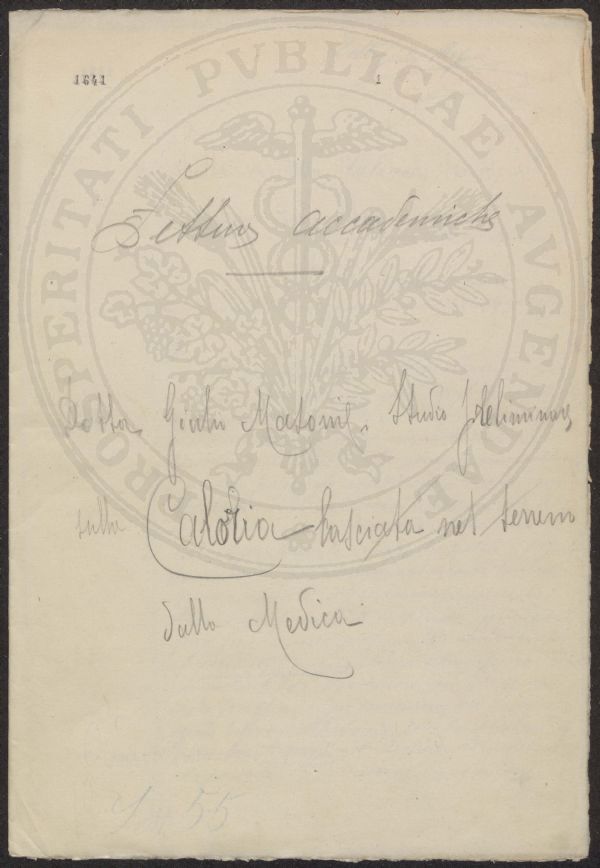 1641 1
PROSPERITATI PVBLICAE AVGENDAE
Letture accademiche
Dottor Giulio Studio preliminare
sulla Caloria lasciata nel terreno
dalla Medica
55